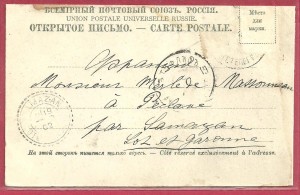 ВСЕМІРНЫЙ ПОЧТОВЫЙ СОЮЗЪ. РОССІЯ.
UNION POSTALE UNIVERSELLE RUSSIE.
ОТКРЫТОЕ ПИСЬМО. — CARTE POSTALE.
Мѣсто
для
марки.
Франція
Monsieur
à
par Samazan
Lot et Garonne
На этой сторонѣ пишется только адресъ. — Côté réservé exclusivement à l'adresse.